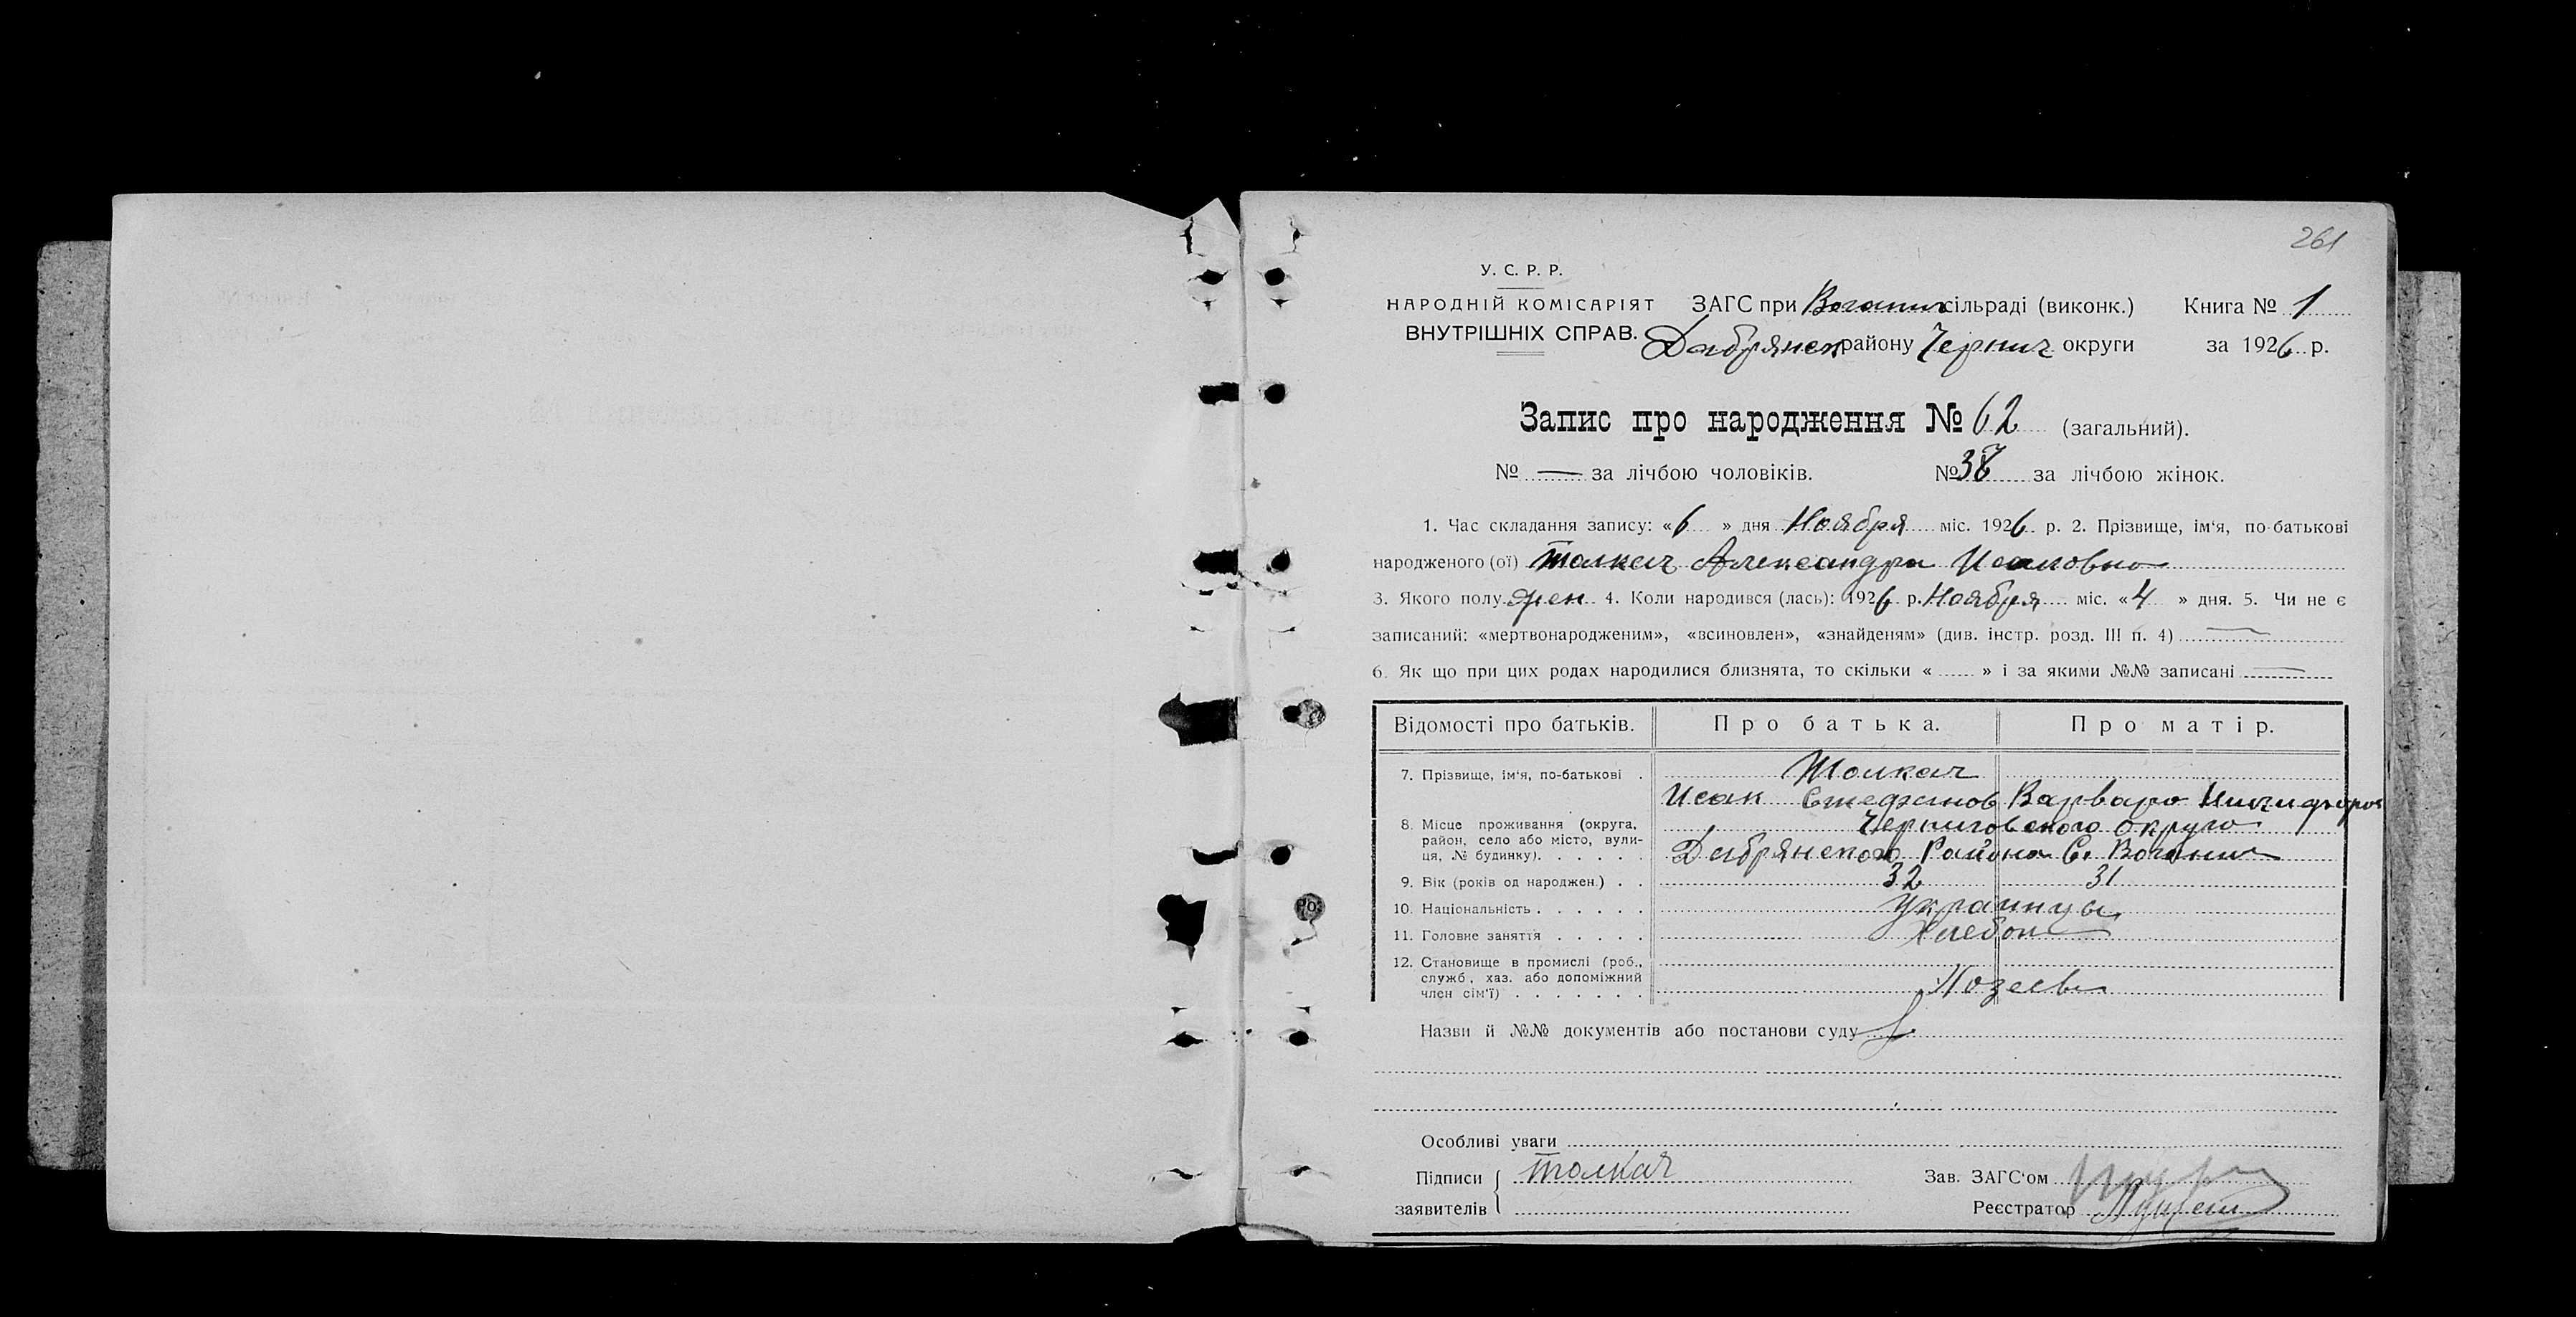 261
У. С. Р. Р.
НАРОДНІЙ КОМІСАРІЯТ
ВНУТРІШНІХ СПРАВ.
ЗАГС при сільраді (виконк.) Книга № 1
району Черниг округи за 1926 р.
Запис про народження № 62 (загальний).
№ — за лічбою чоловіків. № 38 за лічбою жінок.
1. Час складання запису: «6» дня Ноября міс. 1926 р. 2. Прізвище, ім'я, по-батькові
народженого (ої) Толкач Александра Исаковна
3. Якого полу жен 4. Коли народився (лась): 1926 р. Ноября міс. «4» дня. 5. Чи не є
записаний: «мертвонародженим», «всиновлен», «знайденям» (див. інстр. розд. III п. 4) —
6. Як що при цих родах народилися близнята, то скільки « » і за якими №№ записані —
Відомості про батьків. Про батька. Про матір.
7. Прізвище, ім'я, по-батькові Толкач
Исак Стефанов Варвара
8. Місце проживання (округа, район, село або місто, вулиця, № будинку) Черниговского округа
Района С.
9. Вік (років од народжен.) 32 31
10. Національність Украинцы
11. Головне заняття Хлебоп
12. Становище в промислі (роб., служб., хаз. або допоміжний член сім'ї) Хозяева
Назви й №№ документів або постанови суду
Особливі уваги
Підписи заявителів Толкач
Зав. ЗАГС'ом
Реєстратор